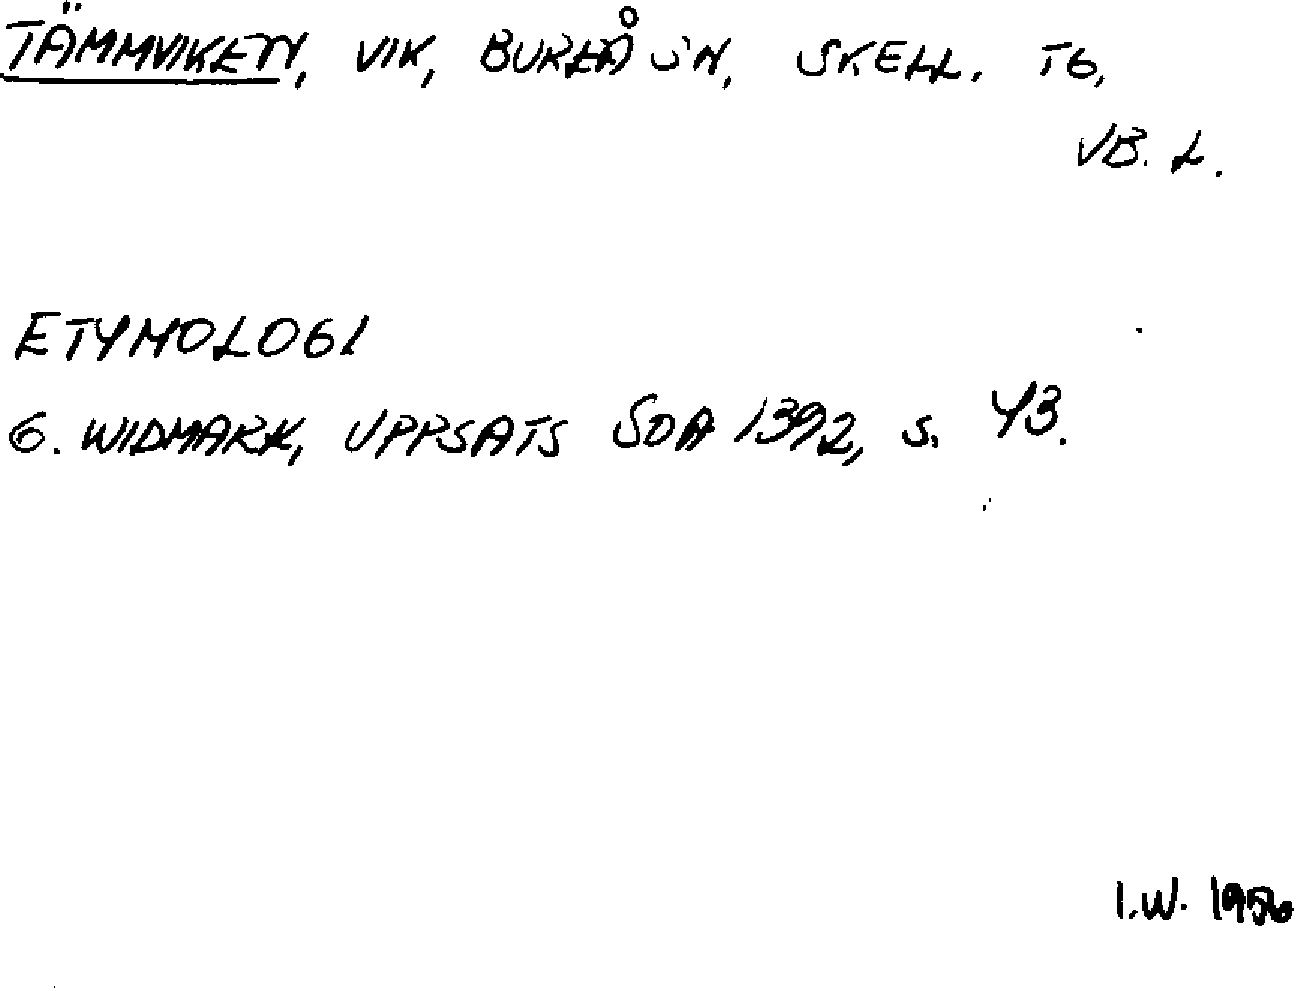 TÄMMVIKEN, VIK, BUREÅ SN, SKELL. TG,
VB. L.
ETYMOLOGI
G. WIDMARK, UPPSATS SOA 1392, S. 43.
I.W. 1956